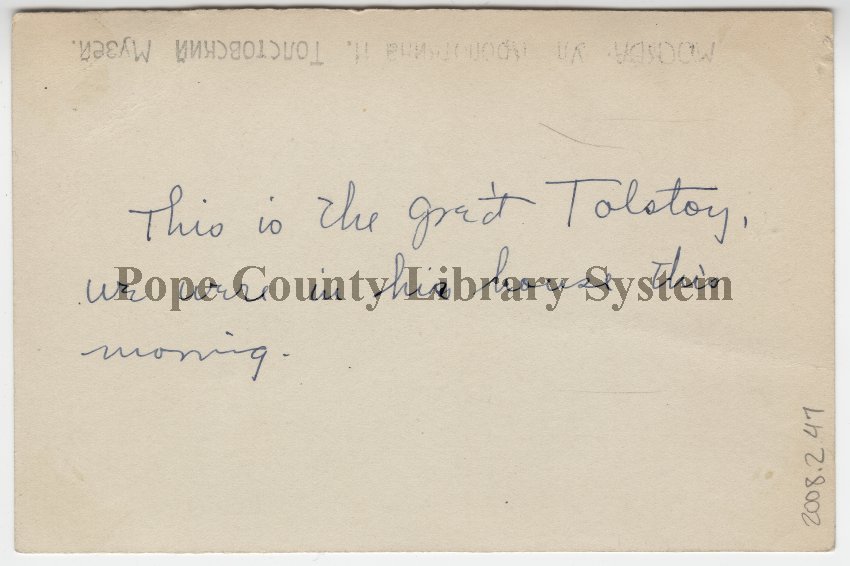 Москва, ул. Кропоткина 11. Толстовский Музей.
This is the great Tolstoy,
we were in his house this
morning.
Pope County Library System
2008.2.47